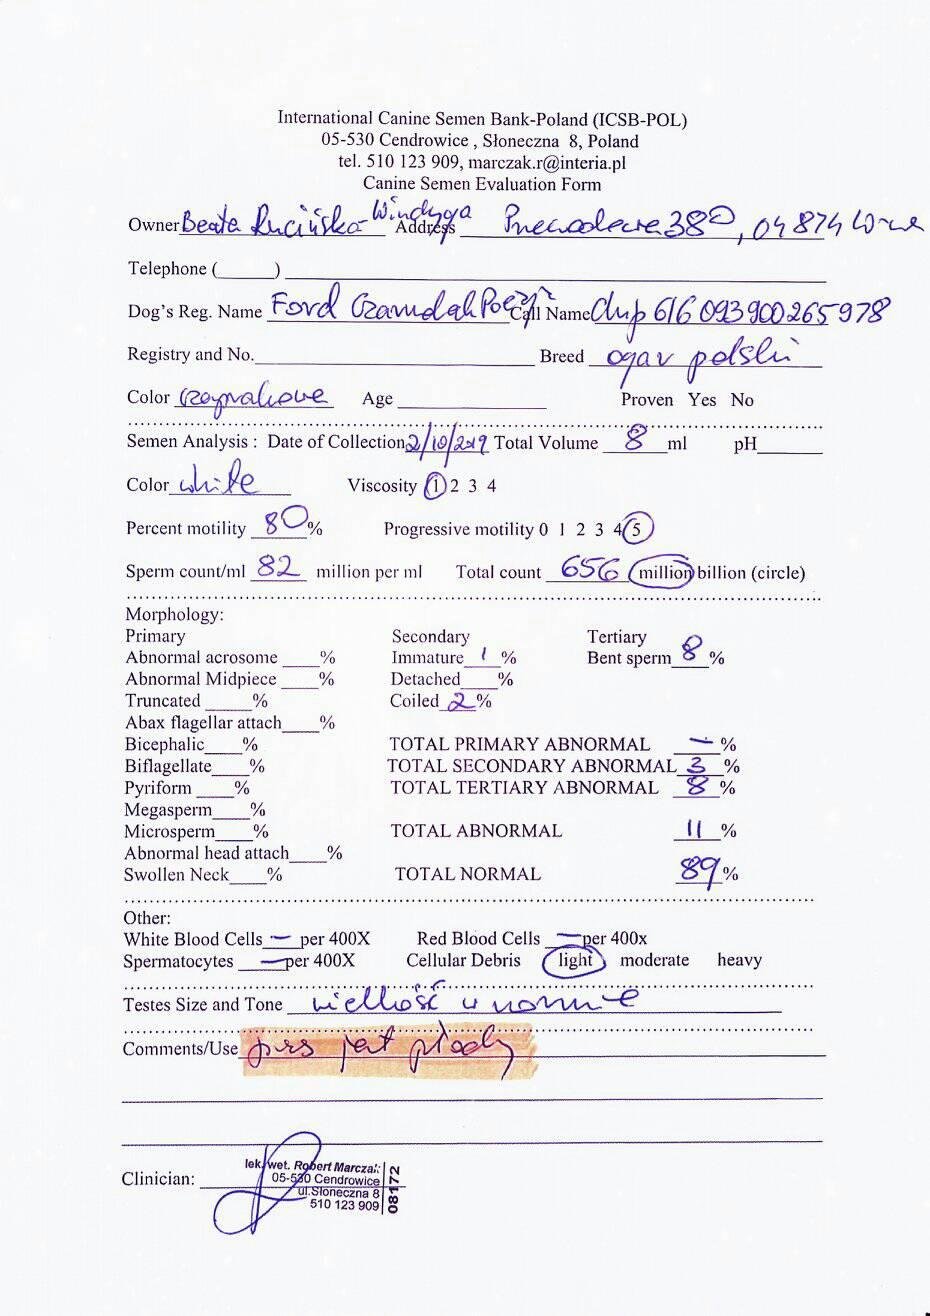 International Canine Semen Bank-Poland (ICSB-POL)
05-530 Cendrowice , Słoneczna 8, Poland
tel. 510 123 909, marczak.r@interia.pl
Canine Semen Evaluation Form
Owner Beata Rucińska-Windyga Address 38, 04874 W-wa
Telephone (______) ______
Dog's Reg. Name Ford Call Name Chip 616 093900265978
Registry and No.______ Breed ogar polski
Color czaprakowe Age ______ Proven Yes No
Semen Analysis : Date of Collection 2/10/2019 Total Volume 8 ml pH______
Color white Viscosity 1 2 3 4
Percent motility 80 % Progressive motility 0 1 2 3 4 5
Sperm count/ml 82 million per ml Total count 656 million billion (circle)
Morphology:
Primary Secondary Tertiary
Abnormal acrosome ____% Immature 1 % Bent sperm 8 %
Abnormal Midpiece ____% Detached____%
Truncated _____% Coiled 2 %
Abax flagellar attach____%
Bicephalic____% TOTAL PRIMARY ABNORMAL — %
Biflagellate____% TOTAL SECONDARY ABNORMAL 3 %
Pyriform ____% TOTAL TERTIARY ABNORMAL 8 %
Megasperm____%
Microsperm____% TOTAL ABNORMAL 11 %
Abnormal head attach____%
Swollen Neck____% TOTAL NORMAL 89 %
Other:
White Blood Cells — per 400X Red Blood Cells — per 400x
Spermatocytes — per 400X Cellular Debris light moderate heavy
Testes Size and Tone wielkość w normie
Comments/Use pies jest płodny
Clinician:
lek. wet. Robert Marczak
05-530 Cendrowice
ul.Słoneczna 8
510 123 909
08172